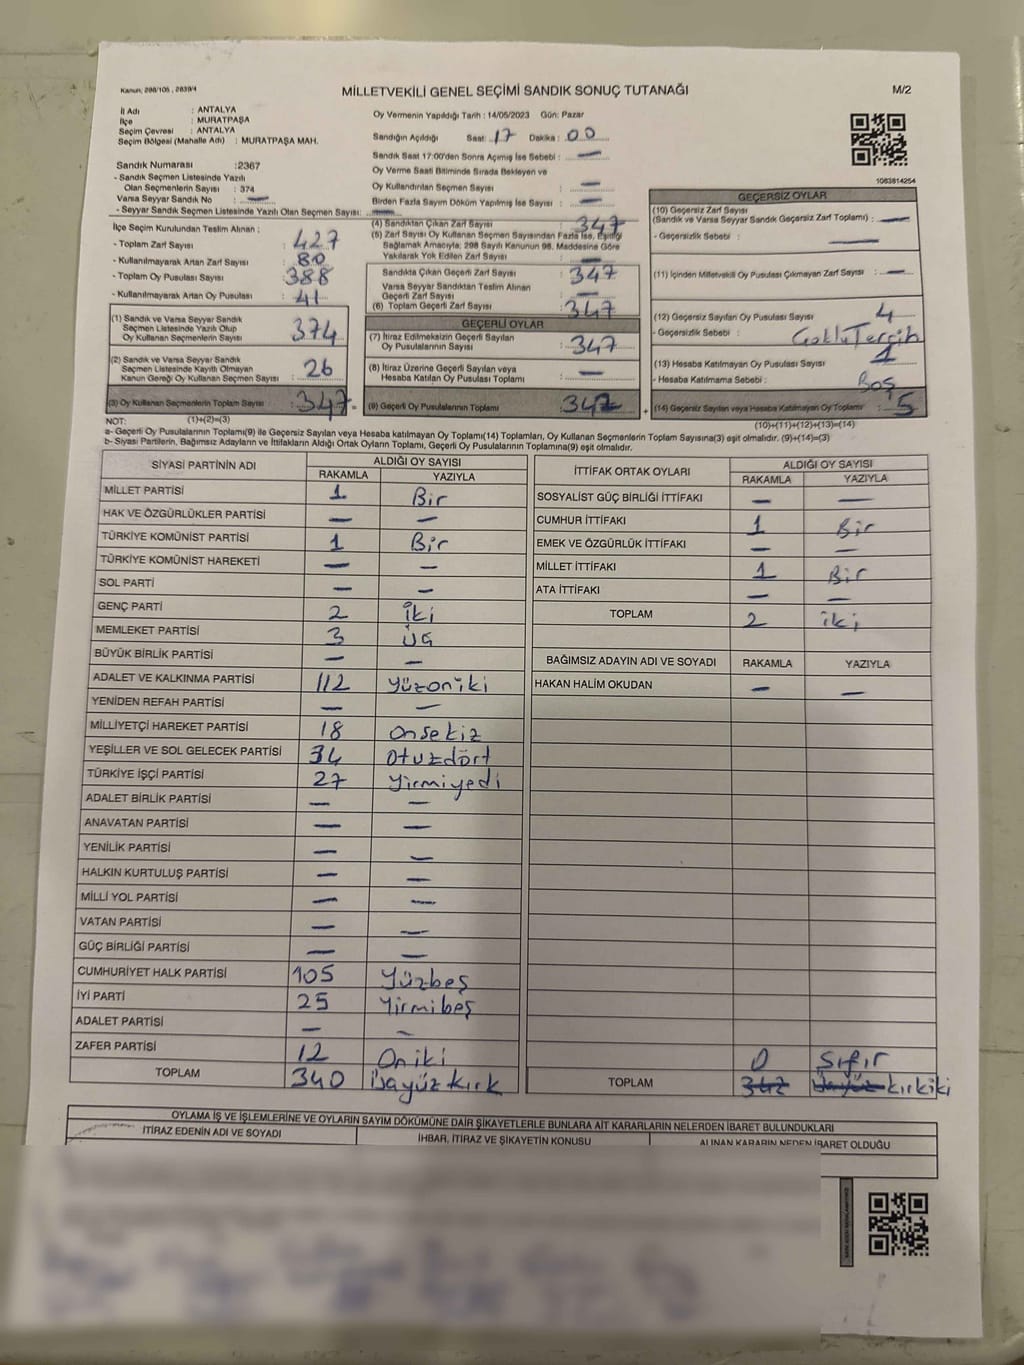 Kanun; 298/105 , 2839/4
MİLLETVEKİLİ GENEL SEÇİMİ SANDIK SONUÇ TUTANAĞI
M/2
İl Adı : ANTALYA
İlçe : MURATPAŞA
Seçim Çevresi : ANTALYA
Seçim Bölgesi (Mahalle Adı) : MURATPAŞA MAH.
Sandık Numarası :2367
- Sandık Seçmen Listesinde Yazılı
Olan Seçmenlerin Sayısı : 374
Varsa Seyyar Sandık No : —
- Seyyar Sandık Seçmen Listesinde Yazılı Olan Seçmen Sayısı: —
İlçe Seçim Kurulundan Teslim Alınan ;
- Toplam Zarf Sayısı : 427
- Kullanılmayarak Artan Zarf Sayısı : 80
- Toplam Oy Pusulası Sayısı : 388
- Kullanılmayarak Artan Oy Pusulası : 41
(1) Sandık ve Varsa Seyyar Sandık
Seçmen Listesinde Yazılı Olup
Oy Kullanan Seçmen Sayısı : 374
(2) Sandık ve Varsa Seyyar Sandık
Seçmen Listesinde Kayıtlı Olmayan
Kanun Gereği Oy Kullanan Seçmen Sayısı : 26
(3) Oy Kullanan Seçmenlerin Toplam Sayısı : 347
(1)+(2)=(3)
Oy Vermenin Yapıldığı Tarih : 14/05/2023 Gün: Pazar
Sandığın Açıldığı Saat: 17 Dakika : 00
Sandık Saat 17:00'den Sonra Açılmış İse Sebebi : —
Oy Verme Saati Bitiminde Sırada Bekleyen ve
Oy Kullandırılan Seçmen Sayısı : —
Birden Fazla Sayım Döküm Yapılmış İse Sayısı : —
(4) Sandıktan Çıkan Zarf Sayısı : 347
(5) Zarf Sayısı Oy Kullanan Seçmen Sayısından Fazla İse, Eşitliği
Sağlamak Amacıyla; 298 Sayılı Kanunun 98. Maddesine Göre
Yakılarak Yok Edilen Zarf Sayısı : —
Sandıkta Çıkan Geçerli Zarf Sayısı : 347
Varsa Seyyar Sandıktan Teslim Alınan
Geçerli Zarf Sayısı : —
(6) Toplam Geçerli Zarf Sayısı : 347
GEÇERLİ OYLAR
(7) İtiraz Edilmeksizin Geçerli Sayılan
Oy Pusulalarının Sayısı : 347
(8) İtiraz Üzerine Geçerli Sayılan veya
Hesaba Katılan Oy Pusulası Toplamı : —
(9) Geçerli Oy Pusulalarının Toplamı : 342
1083814254
GEÇERSİZ OYLAR
(10) Geçersiz Zarf Sayısı
(Sandık ve Varsa Seyyar Sandık Geçersiz Zarf Toplamı) : —
- Geçersizlik Sebebi : —
(11) İçinden Milletvekili Oy Pusulası Çıkmayan Zarf Sayısı : —
(12) Geçersiz Sayılan Oy Pusulası Sayısı : 4
- Geçersizlik Sebebi : Çoklu Tercih
(13) Hesaba Katılmayan Oy Pusulası Sayısı : 1
- Hesaba Katılmama Sebebi : Boş
(14) Geçersiz Sayılan veya Hesaba Katılmayan Oy Toplamı : 5
(10)+(11)+(12)+(13)=(14)
NOT:
a- Geçerli Oy Pusulalarının Toplamı(9) ile Geçersiz Sayılan veya Hesaba katılmayan Oy Toplamı(14) Toplamları, Oy Kullanan Seçmenlerin Toplam Sayısına(3) eşit olmalıdır. (9)+(14)=(3)
b- Siyasi Partilerin, Bağımsız Adayların ve İttifakların Aldığı Ortak Oyların Toplamı, Geçerli Oy Pusulalarının Toplamına(9) eşit olmalıdır.
SİYASİ PARTİNİN ADI ALDIĞI OY SAYISI
RAKAMLA YAZIYLA
MİLLET PARTİSİ 1 Bir
HAK VE ÖZGÜRLÜKLER PARTİSİ — —
TÜRKİYE KOMÜNİST PARTİSİ 1 Bir
TÜRKİYE KOMÜNİST HAREKETİ — —
SOL PARTİ — —
GENÇ PARTİ 2 iki
MEMLEKET PARTİSİ 3 ÜÇ
BÜYÜK BİRLİK PARTİSİ — —
ADALET VE KALKINMA PARTİSİ 112 yüzoniki
YENİDEN REFAH PARTİSİ — —
MİLLİYETÇİ HAREKET PARTİSİ 18 onsekiz
YEŞİLLER VE SOL GELECEK PARTİSİ 34 otuzdört
TÜRKİYE İŞÇİ PARTİSİ 27 Yirmiyedi
ADALET BİRLİK PARTİSİ — —
ANAVATAN PARTİSİ — —
YENİLİK PARTİSİ — —
HALKIN KURTULUŞ PARTİSİ — —
MİLLİ YOL PARTİSİ — —
VATAN PARTİSİ — —
GÜÇ BİRLİĞİ PARTİSİ — —
CUMHURİYET HALK PARTİSİ 105 Yüzbeş
İYİ PARTİ 25 Yirmibeş
ADALET PARTİSİ — —
ZAFER PARTİSİ 12 Oniki
TOPLAM 340 Üçyüz kırk
İTTİFAK ORTAK OYLARI ALDIĞI OY SAYISI
RAKAMLA YAZIYLA
SOSYALİST GÜÇ BİRLİĞİ İTTİFAKI — —
CUMHUR İTTİFAKI 1 Bir
EMEK VE ÖZGÜRLÜK İTTİFAKI — —
MİLLET İTTİFAKI 1 Bir
ATA İTTİFAKI — —
TOPLAM 2 iki
BAĞIMSIZ ADAYIN ADI VE SOYADI RAKAMLA YAZIYLA
HAKAN HALİM OKUDAN — —
0 Sıfır
TOPLAM 342 Üçyüz kırkiki
OYLAMA İŞ VE İŞLEMLERİNE VE OYLARIN SAYIM DÖKÜMÜNE DAİR ŞİKAYETLERLE BUNLARA AİT KARARLARIN NELERDEN İBARET BULUNDUKLARI
İTİRAZ EDENİN ADI VE SOYADI İHBAR, İTİRAZ VE ŞİKAYETİN KONUSU ALINAN KARARIN NEDEN İBARET OLDUĞU